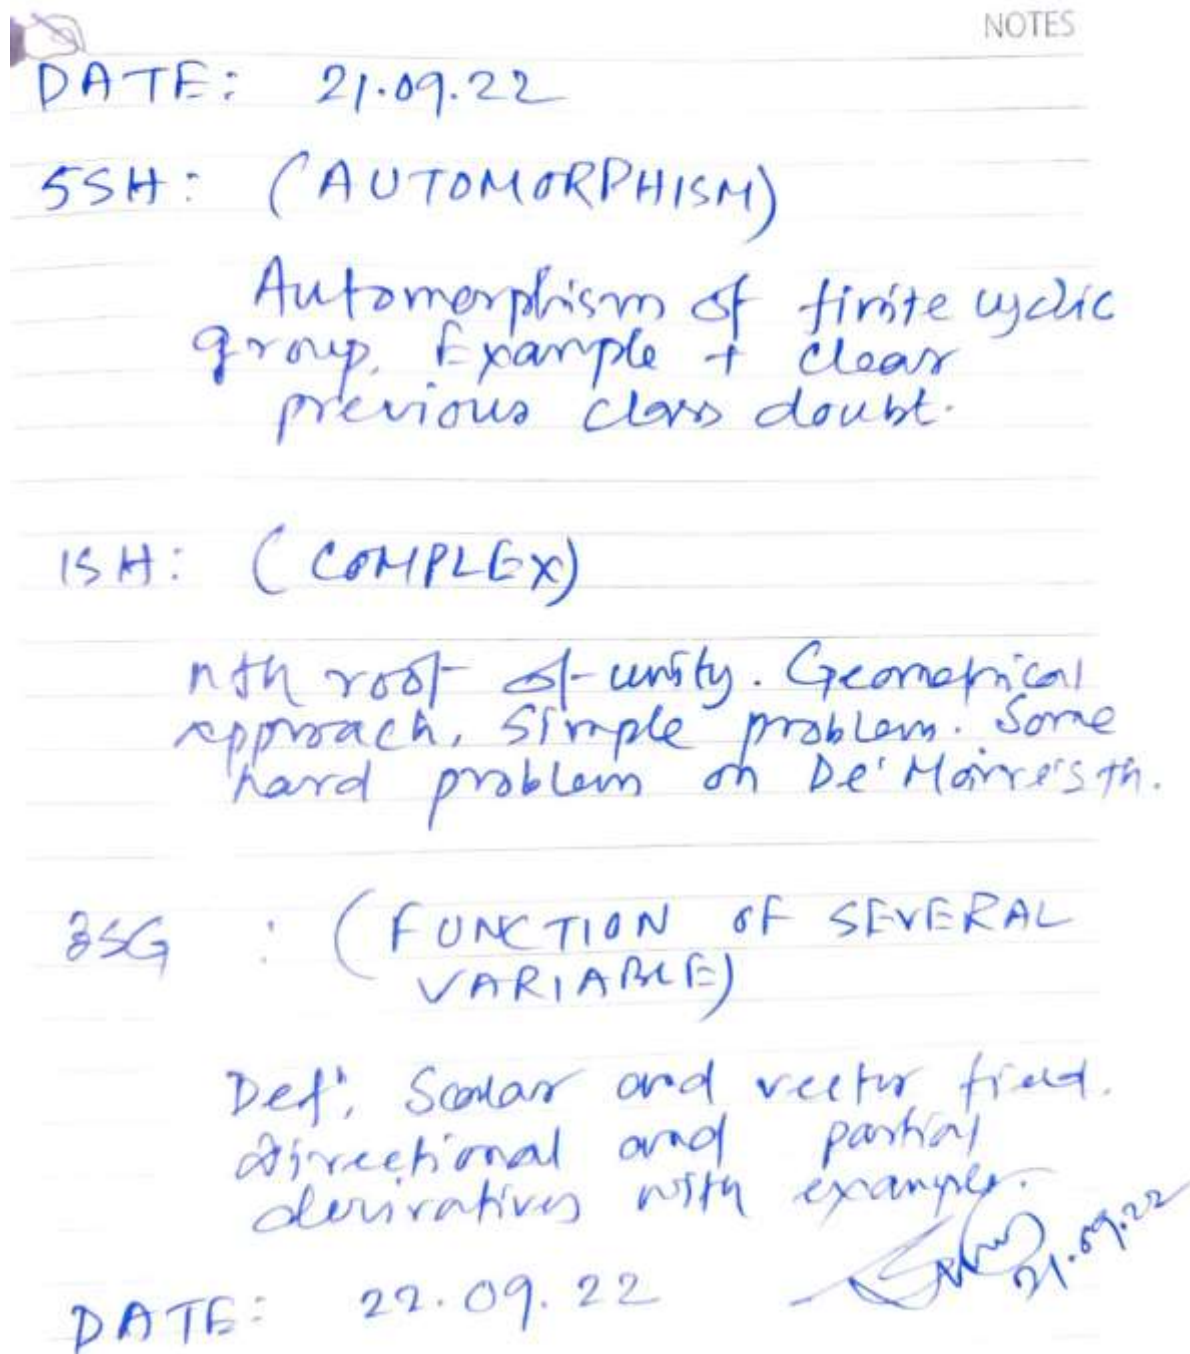 NOTES
DATE: 21.09.22
5SH: (AUTOMORPHISM)
Automorphism of finite cyclic
group. Example + clear
previous class doubt.
1SH: (COMPLEX)
nth root of unity. Geometrical
approach, Simple problem. Some
hard problem on De' Moivre's th.
3SG : (FUNCTION OF SEVERAL
VARIABLE)
Def', Scalar and vector field.
directional and partial
derivatives with examples.
21.09.22
DATE: 22.09.22